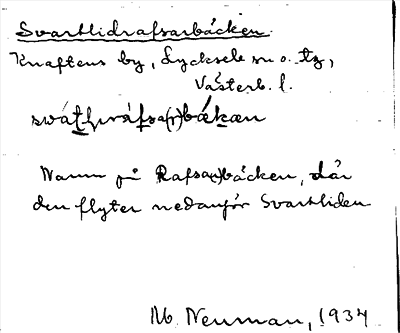 Svartlidrafsarbäcken.
Knaftens by, Lycksele sn o. tg,
Västerb. l.
Namn på Rafsa(r)bäcken, där
den flyter nedanför Svartliden
M. Neuman, 1934